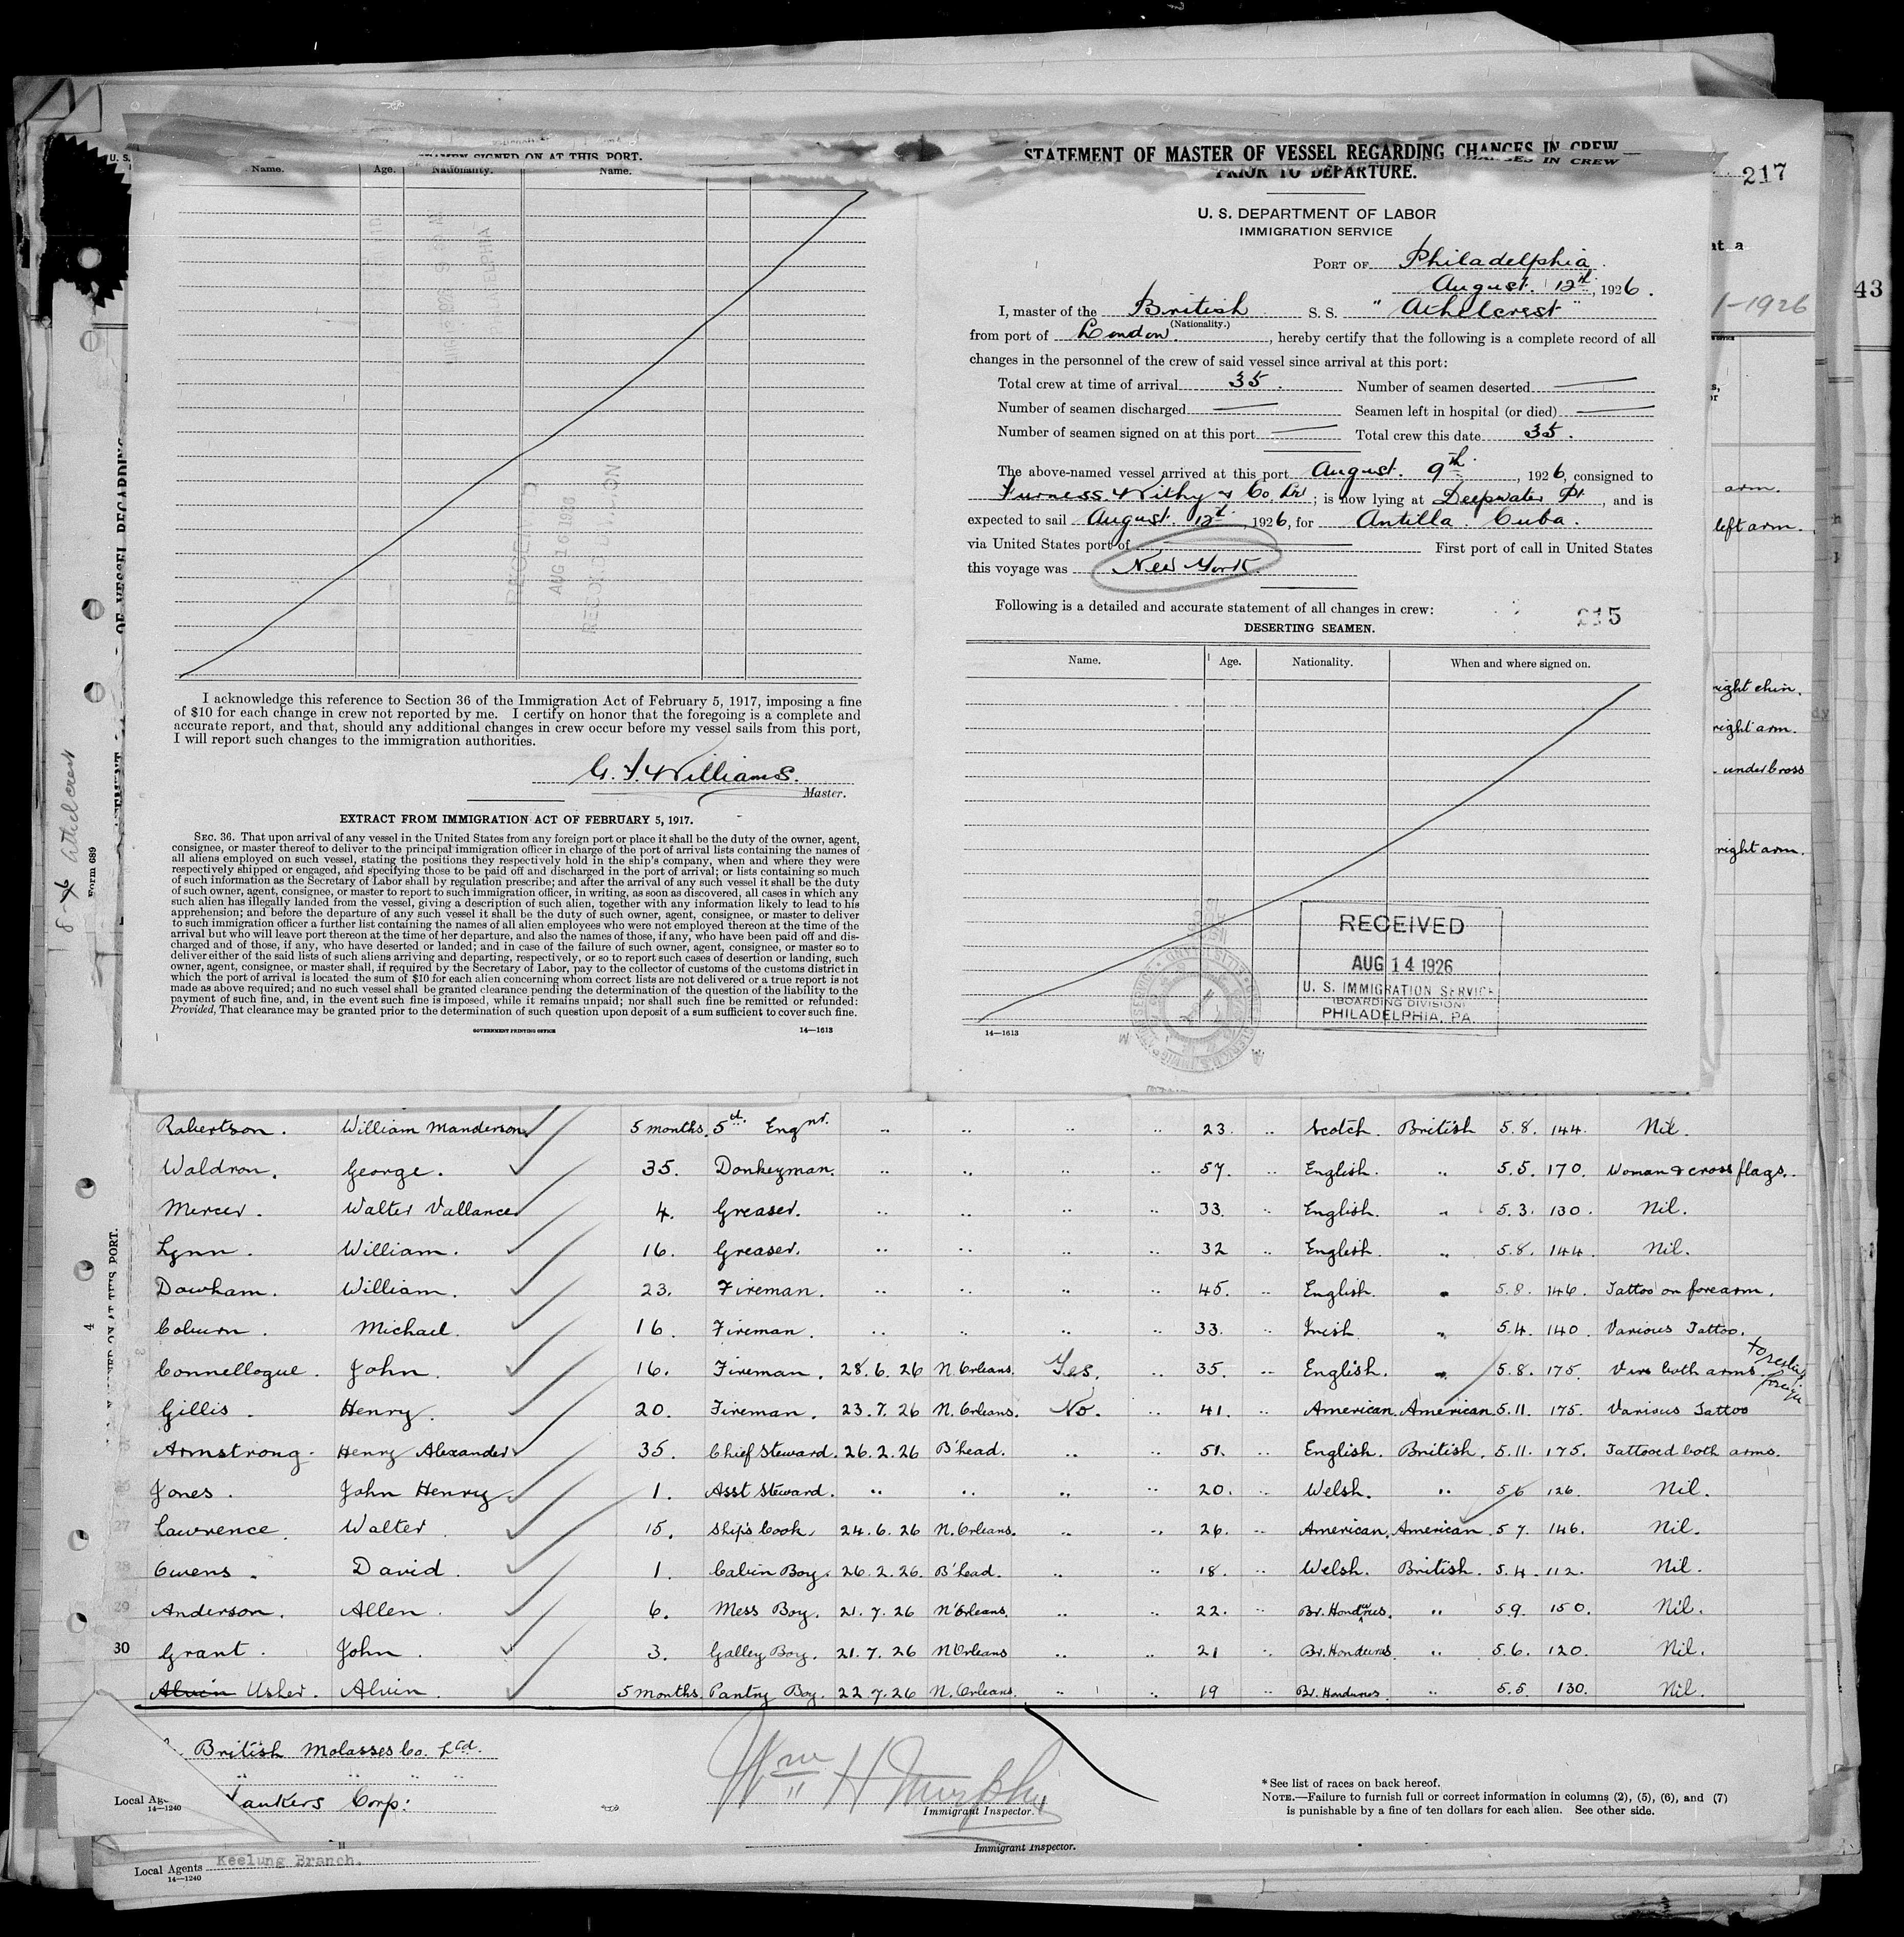 SEAMEN SIGNED ON AT THIS PORT.
Name. Age. Nationality. Name.
I acknowledge this reference to Section 36 of the Immigration Act of February 5, 1917, imposing a fine
of $10 for each change in crew not reported by me. I certify on honor that the foregoing is a complete and
accurate report, and that, should any additional changes in crew occur before my vessel sails from this port,
I will report such changes to the immigration authorities.
G. Williams.
Master.
EXTRACT FROM IMMIGRATION ACT OF FEBRUARY 5, 1917.
SEC. 36. That upon arrival of any vessel in the United States from any foreign port or place it shall be the duty of the owner, agent,
consignee, or master thereof to deliver to the principal immigration officer in charge of the port of arrival lists containing the names of
all aliens employed on such vessel, stating the positions they respectively hold in the ship's company, when and where they were
respectively shipped or engaged, and specifying those to be paid off and discharged in the port of arrival; or lists containing so much
of such information as the Secretary of Labor shall by regulation prescribe; and after the arrival of any such vessel it shall be the duty
of such owner, agent, consignee, or master to report to such immigration officer, in writing, as soon as discovered, all cases in which any
such alien has illegally landed from the vessel, giving a description of such alien, together with any information likely to lead to his
apprehension; and before the departure of any such vessel it shall be the duty of such owner, agent, consignee, or master to deliver
to such immigration officer a further list containing the names of all alien employees who were not employed thereon at the time of the
arrival but who will leave port thereon at the time of her departure, and also the names of those, if any, who have been paid off and dis-
charged and of those, if any, who have deserted or landed; and in case of the failure of such owner, agent, consignee, or master so to
deliver either of the said lists of such aliens arriving and departing, respectively, or so to report such cases of desertion or landing, such
owner, agent, consignee, or master shall, if required by the Secretary of Labor, pay to the collector of customs of the customs district in
which the port of arrival is located the sum of $10 for each alien concerning whom correct lists are not delivered or a true report is not
made as above required; and no such vessel shall be granted clearance pending the determination of the question of the liability to the
payment of such fine, and, in the event such fine is imposed, while it remains unpaid; nor shall such fine be remitted or refunded:
Provided, That clearance may be granted prior to the determination of such question upon deposit of a sum sufficient to cover such fine.
GOVERNMENT PRINTING OFFICE 14—1613
STATEMENT OF MASTER OF VESSEL REGARDING CHANGES IN CREW
PRIOR TO DEPARTURE.
U. S. DEPARTMENT OF LABOR
IMMIGRATION SERVICE
PORT OF Philadelphia
August. 12th, 1926.
I, master of the British S. S. "Athelcrest"
(Nationality.)
from port of London., hereby certify that the following is a complete record of all
changes in the personnel of the crew of said vessel since arrival at this port:
Total crew at time of arrival 35. Number of seamen deserted —
Number of seamen discharged — Seamen left in hospital (or died) —
Number of seamen signed on at this port — Total crew this date 35.
The above-named vessel arrived at this port August. 9th., 1926, consigned to
Furness. Withy & Co. Ltd; is now lying at Deepwater Pt., and is
expected to sail August. 12th, 1926, for Antilla. Cuba.
via United States port of — First port of call in United States
this voyage was New York.
Following is a detailed and accurate statement of all changes in crew:
215
DESERTING SEAMEN.
Name. Age. Nationality. When and where signed on.
RECEIVED
AUG 14 1926
U. S. IMMIGRATION SERVICE
(BOARDING DIVISION)
PHILADELPHIA, PA.
14—1613
217
43
1-1926
arm.
left arm.
right chin.
right arm.
right arm.
8-26 Athelcrest
Form 689
Robertson. William Manderson 5 months. 5th. Engnr. .. .. .. .. 23. .. Scotch. British 5.8. 144. Nil.
Waldron. George. 35. Donkeyman. .. .. .. .. 57. .. English. .. 5.5. 170. Woman & cross flags.
Mercer. Walter Vallance 4. Greaser. .. .. .. .. 33. .. English. .. 5.3. 130. Nil.
Lynn. William. 16. Greaser. .. .. .. .. 32 .. English. .. 5.8. 144. Nil.
Dawham. William. 23. Fireman. .. .. .. .. 45. .. English. .. 5.8. 146. Tattoo on forearm.
Coburn. Michael. 16. Fireman. .. .. .. .. 33. .. Irish .. 5.4. 140. Various Tattoo.
Connellogue. John. 16. Fireman. 28.6.26 N. Orleans. Yes. .. 35. .. English. .. 5.8. 175. both arms. to reship foreign
Gillis. Henry. 20. Fireman. 23.7.26 N. Orleans. No. .. 41. .. American. American. 5.11. 175. Various Tattoo
Armstrong. Henry Alexander 35. Chief Steward. 26.2.26 B'head. .. .. 51. .. English. British. 5.11. 175. Tattooed both arms.
Jones. John Henry 1. Asst Steward. .. .. .. .. 20. .. Welsh. .. 5 6 126. Nil.
27 Lawrence. Walter 15. Ships Cook. 24.6.26 N. Orleans. .. .. 26. .. American. American. 5 7. 146. Nil.
28 Owens. David. 1. Cabin Boy. 26.2.26. B'head. .. .. 18. .. Welsh. British. 5.4. 112. Nil.
29 Anderson. Allen. 6. Mess Boy. 21.7.26 N'Orleans. .. .. 22. .. Br. Hondurus. .. 5 9. 150. Nil.
30 Grant. John. 3. Galley Boy. 21.7.26 N Orleans .. .. 21 .. Br. Hondurus. .. 5.6. 120. Nil.
Alvin Usher. Alvin. 5 months Pantry Boy. 22.7.26 N. Orleans. .. .. 19 .. Br. Hondurus. .. 5.5. 130. Nil.
British Molasses Co. Ltd.
Tankers Corp:
Local Ag
14—1240
Wm H Murphy
Immigrant Inspector.
* See list of races on back hereof.
NOTE.—Failure to furnish full or correct information in columns (2), (5), (6), and (7)
is punishable by a fine of ten dollars for each alien. See other side.
Immigrant Inspector.
Local Agents Keelung Branch.
14—1240